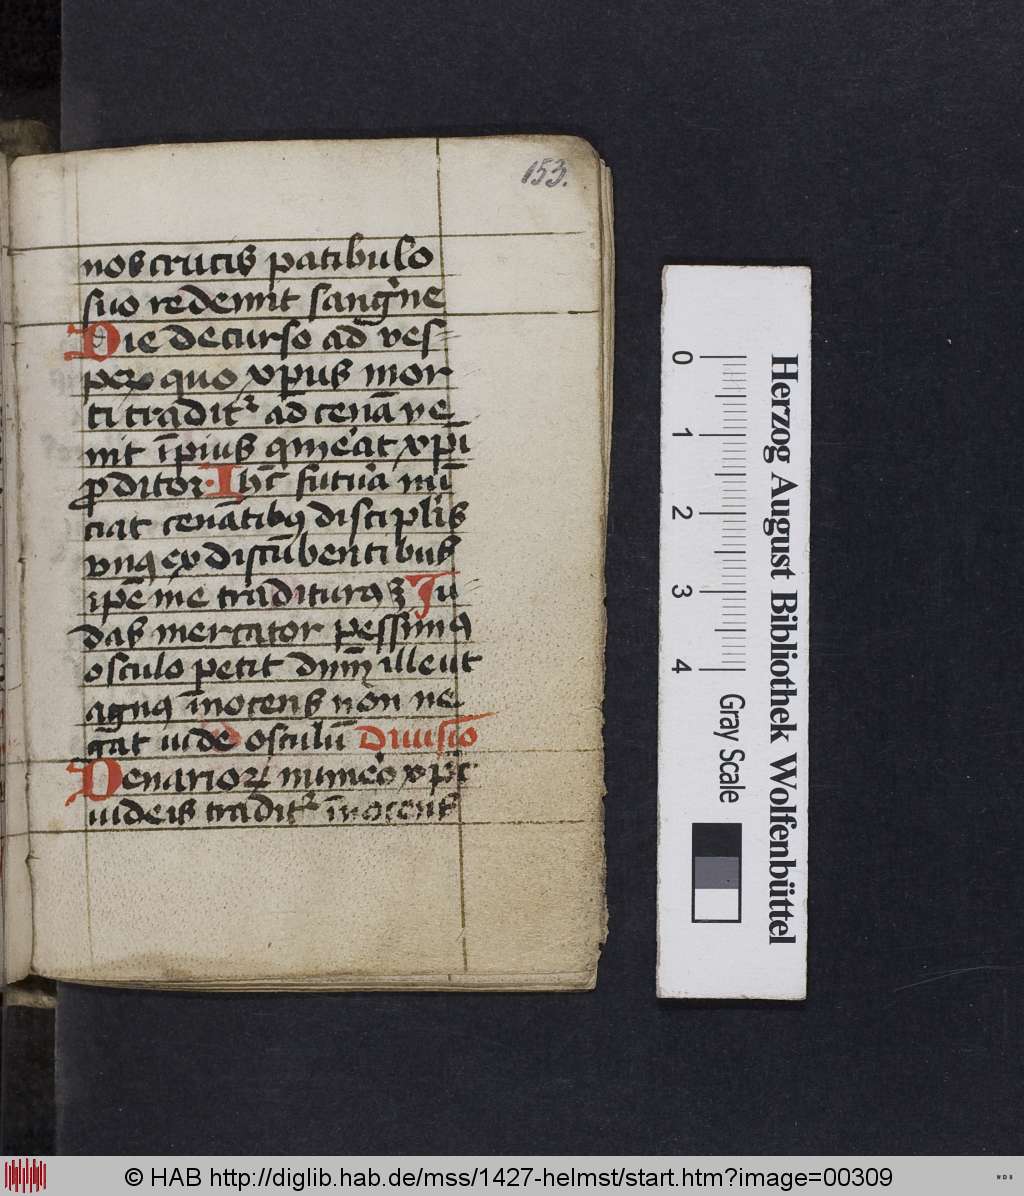 153.
nos crucis patibulo
suo redemit sang̾ne
Die decurso ad ves-
peꝝ quo xp̄us mor
ti tradit᷑ ad cenā ve
nit īpius qui erat xp̄i
ꝓditor Ihc̄ futura nū
ciat cenātibꝯ discipl̾is
vnꝯ ex discūbentibus
ip̄e me traditurꝯ ꝫ Iu
das mercator pessimꝯ
osculo petit dn̄m ille ut
agnꝯ īnocens non ne
gat iude osculū Diuisio
Denarioꝝ numero xp̄c
iudeis tradit᷑ īnocens
0 1 2 3 4
Gray Scale
Herzog August Bibliothek Wolfenbüttel
© HAB http://diglib.hab.de/mss/1427-helmst/start.htm?image=00309